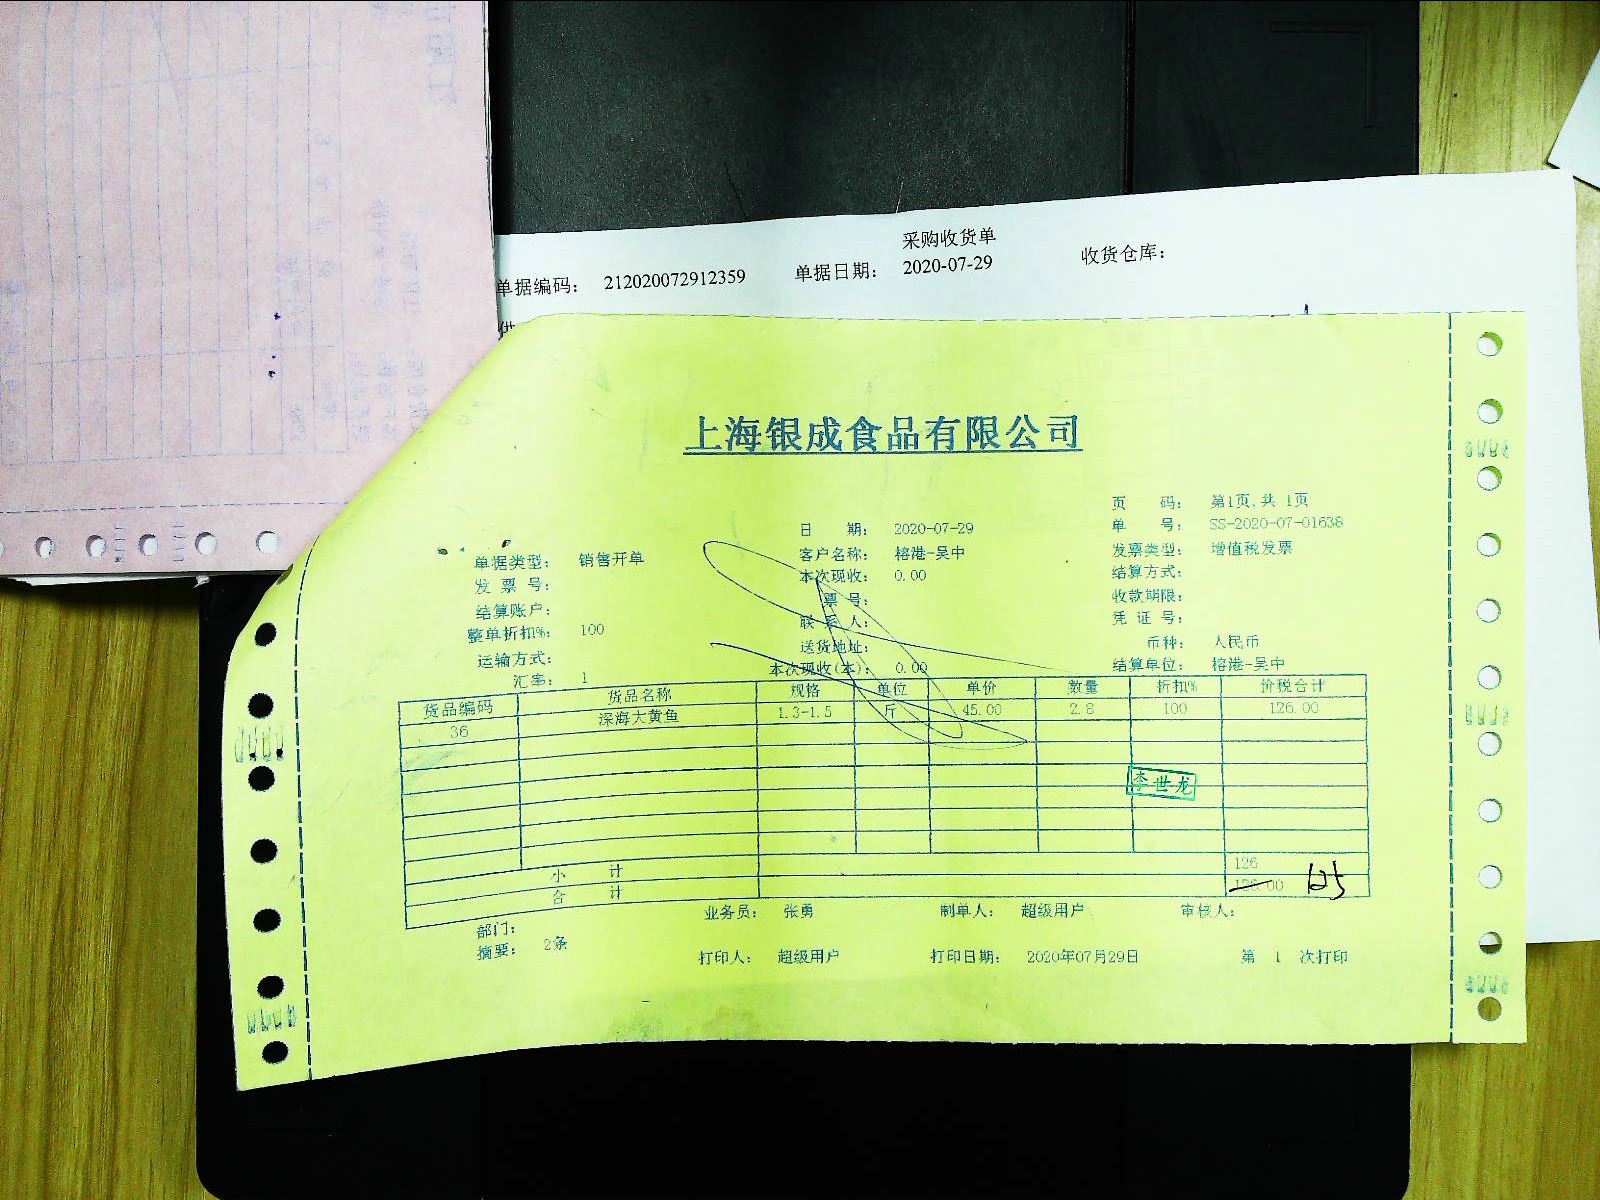 采购收货单
单据编码： 212020072912359 单据日期： 2020-07-29 收货仓库：
供
上海银成食品有限公司
页 码： 第1页,共 1页
日 期： 2020-07-29 单 号： SS-2020-07-01638
单据类型： 销售开单 客户名称： 榕港-吴中 发票类型： 增值税发票
发 票 号： 本次现收： 0.00 结算方式：
结算账户： 票 号： 收款期限：
整单折扣%： 100 联 系 人： 凭 证 号：
运输方式： 送货地址： 币种： 人民币
汇率： 1 本次现收(本)： 0.00 结算单位： 榕港-吴中
货品编码 货品名称 规格 单位 单价 数量 折扣% 价税合计
36 深海大黄鱼 1.3-1.5 斤 45.00 2.8 100 126.00
李世龙
小 计 126
合 计 126.00 125
部门： 业务员： 张勇 制单人： 超级用户 审核人：
摘要： 2条 打印人： 超级用户 打印日期： 2020年07月29日 第 1 次打印